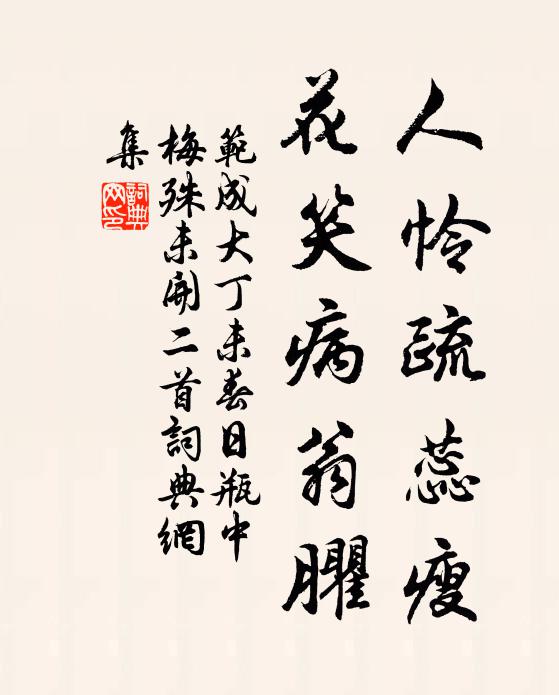 人怜疏蕊瘦
花笑病翁臞
範成大丁未春日瓶中
梅殊未開二首詞典網
集
詞典
网印